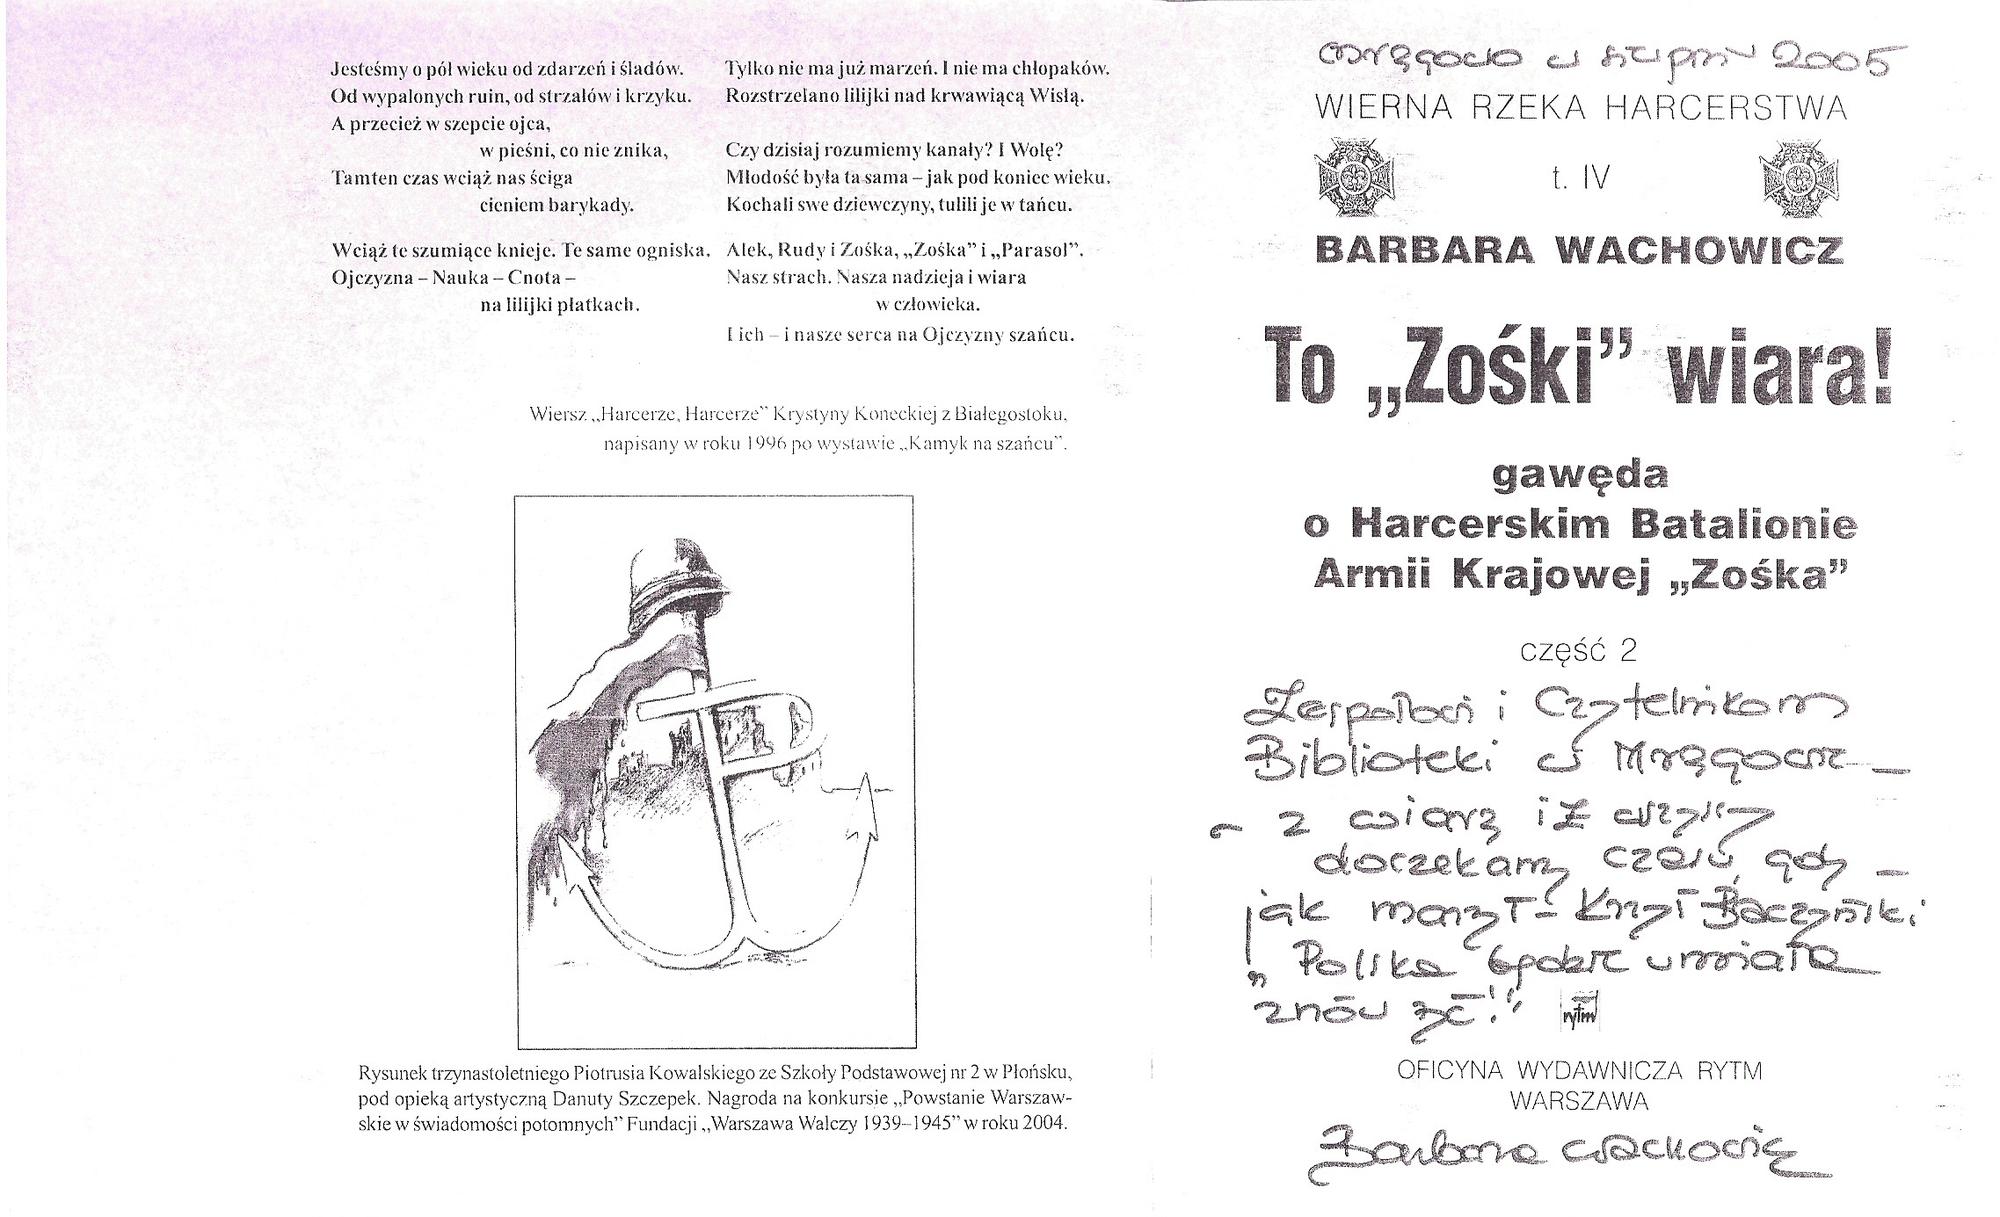 Jesteśmy o pół wieku od zdarzeń i śladów.
Od wypalonych ruin, od strzałów i krzyku.
A przecież w szepcie ojca,
w pieśni, co nie znika,
Tamten czas wciąż nas ściga
cieniem barykady.
Wciąż te szumiące knieje. Te same ogniska.
Ojczyzna – Nauka – Cnota –
na lilijki płatkach.
Tylko nie ma już marzeń. I nie ma chłopaków.
Rozstrzelano lilijki nad krwawiącą Wisłą.
Czy dzisiaj rozumiemy kanały? I Wolę?
Młodość była ta sama – jak pod koniec wieku.
Kochali swe dziewczyny, tulili je w tańcu.
Alek, Rudy i Zośka, „Zośka” i „Parasol”.
Nasz strach. Nasza nadzieja i wiara
w człowieka.
I ich – i nasze serca na Ojczyzny szańcu.
Wiersz „Harcerze, Harcerze” Krystyny Koneckiej z Białegostoku,
napisany w roku 1996 po wystawie „Kamyk na szańcu”.
Rysunek trzynastoletniego Piotrusia Kowalskiego ze Szkoły Podstawowej nr 2 w Płońsku,
pod opieką artystyczną Danuty Szczepek. Nagroda na konkursie „Powstanie Warszaw-
skie w świadomości potomnych” Fundacji „Warszawa Walczy 1939–1945” w roku 2004.
Mrągowo w sierpniu 2005
WIERNA RZEKA HARCERSTWA
t. IV
BARBARA WACHOWICZ
To „Zośki” wiara!
gawęda
o Harcerskim Batalionie
Armii Krajowej „Zośka”
część 2
Zespołowi i Czytelnikom
Biblioteki w Mrągowie –
– z wiarą iż wszyscy
doczekamy czasu, gdy –
jak marzył – Krzyś Baczyński
„Polska będzie umiała
znów żyć!”
rytm
OFICYNA WYDAWNICZA RYTM
WARSZAWA
Barbara Wachowicz